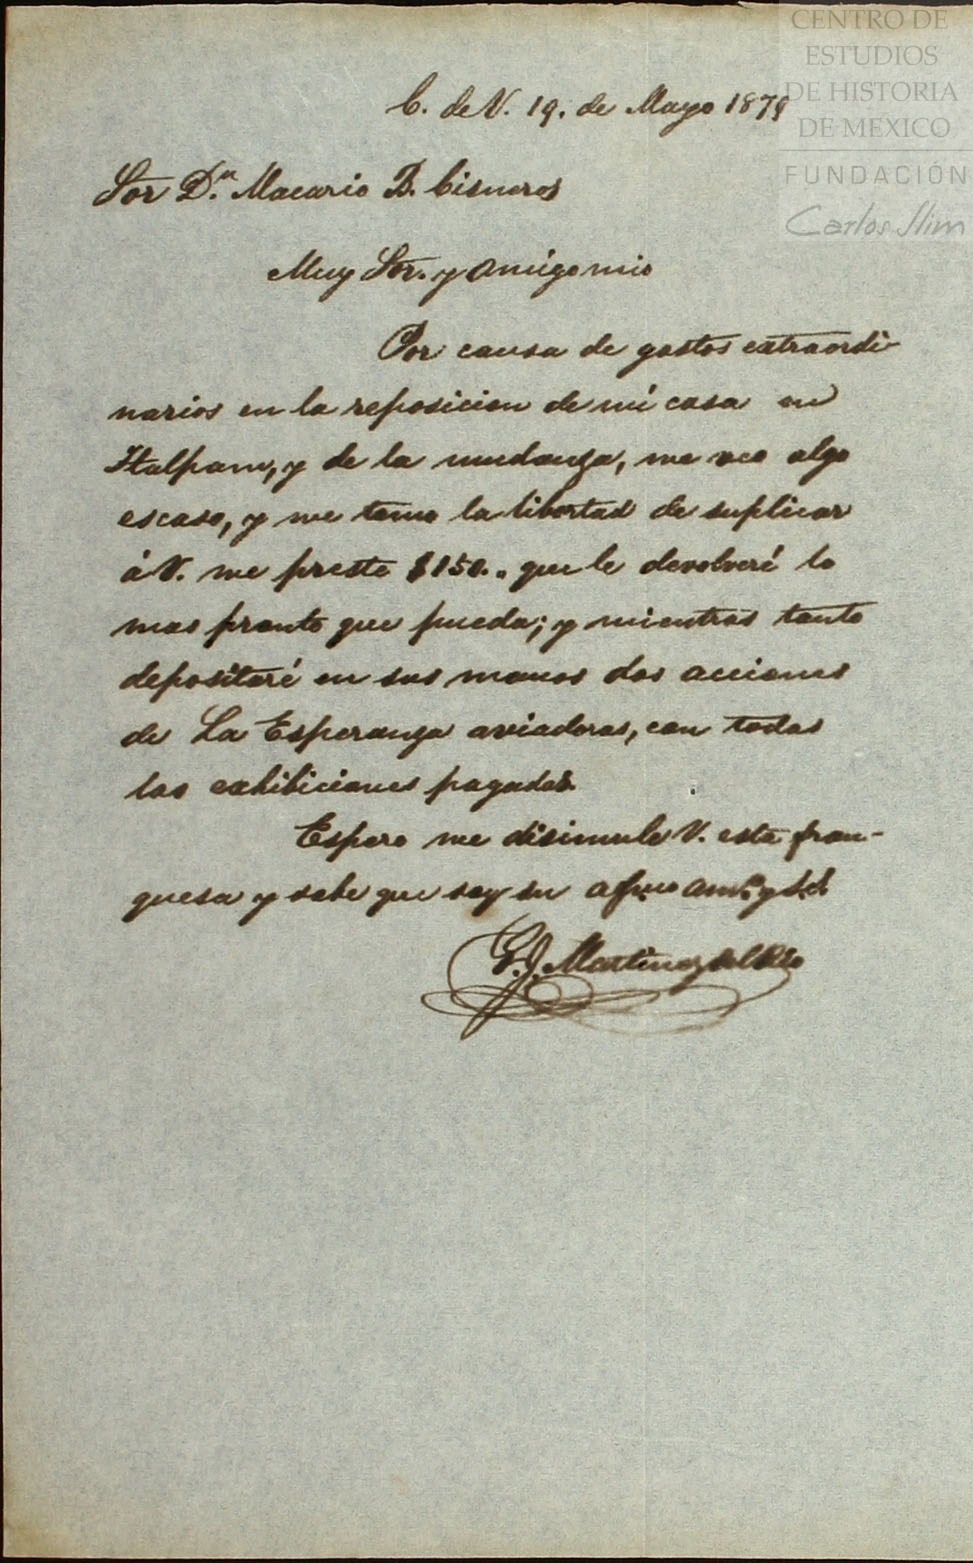 CENTRO DE
ESTUDIOS
DE HISTORIA
DE MEXICO
FUNDACIÓN
Carlos Slim
C. de V. 19. de Mayo 1879
Sor Dn. Macario B. Cisneros
Muy Sor. y amigo mio
Por causa de gastos extraordi-
narios en la reposicion de mi casa en
Tlalpam, y de la mudanza, me veo algo
escaso, y me tomo la libertad de suplicar
á V. me preste $150.. que le devolveré lo
mas pronto que pueda; y mientras tanto
depositaré en sus manos dos acciones
de La Esperanza aviadoras, con todas
las exhibiciones pagadas.
Espero me disimule V. esta fran-
quesa y sabe que soy su afmo amo. y S.S.
Martinez del Rio